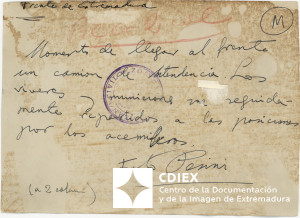 Frente de Extremadura
M
Momento de llegar al frente
un camion de Intendencia Los
viveres y municiones son seguida-
mente repartidos a las posiciones
por los acemileros.
(a 2 colum.)
CDIEX
Centro de la Documentación
y de la Imagen de Extremadura